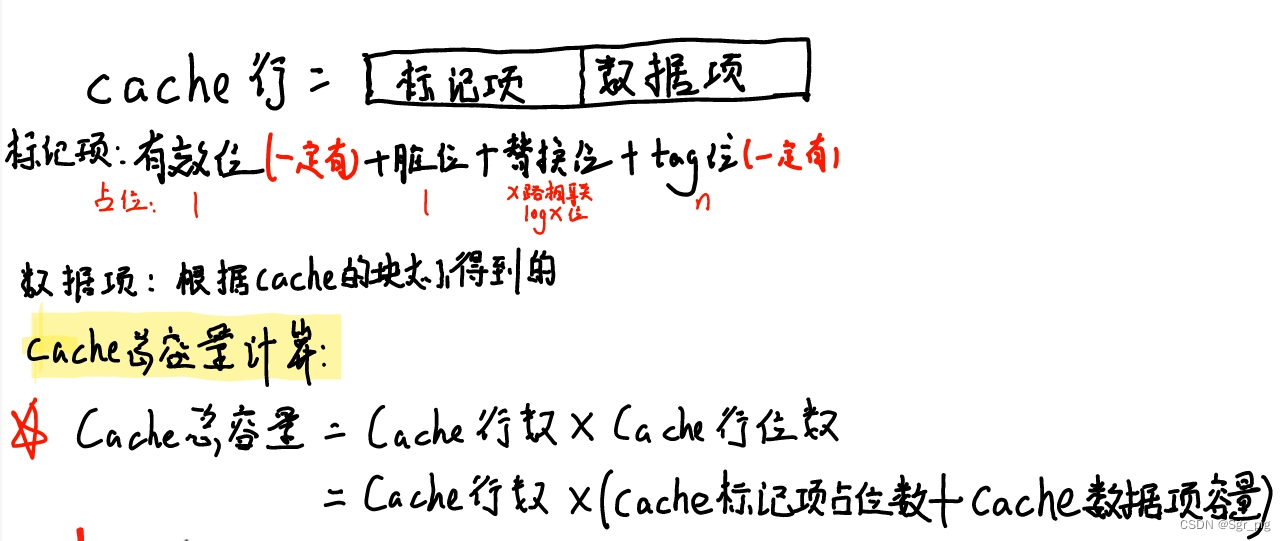 cache行 = 标记项 数据项
标记项:有效位(一定有)+脏位+替换位+tag位(一定有)
占位: 1 1 X路相联 n
logX位
数据项:根据cache的块大小得到的
Cache总容量计算:
Cache总容量 = Cache行数 × Cache行位数
= Cache行数 ×(Cache标记项占位数+Cache数据项容量)
CSDN @Sgr_ng